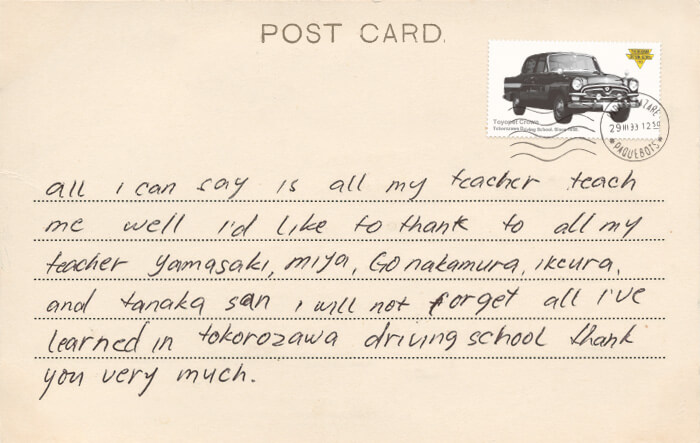 POST CARD.
Toyopet Crown
Tokorozawa Driving School, Since 1958
29 III 33 12 50
PAQUEBOTS
all i can say is all my teacher teach
me well i'd like to thank to all my
teacher yamasaki, miya, Gonakamura, ikeura,
and tanaka san i will not forget all i've
learned in tokorozawa driving school thank
you very much.